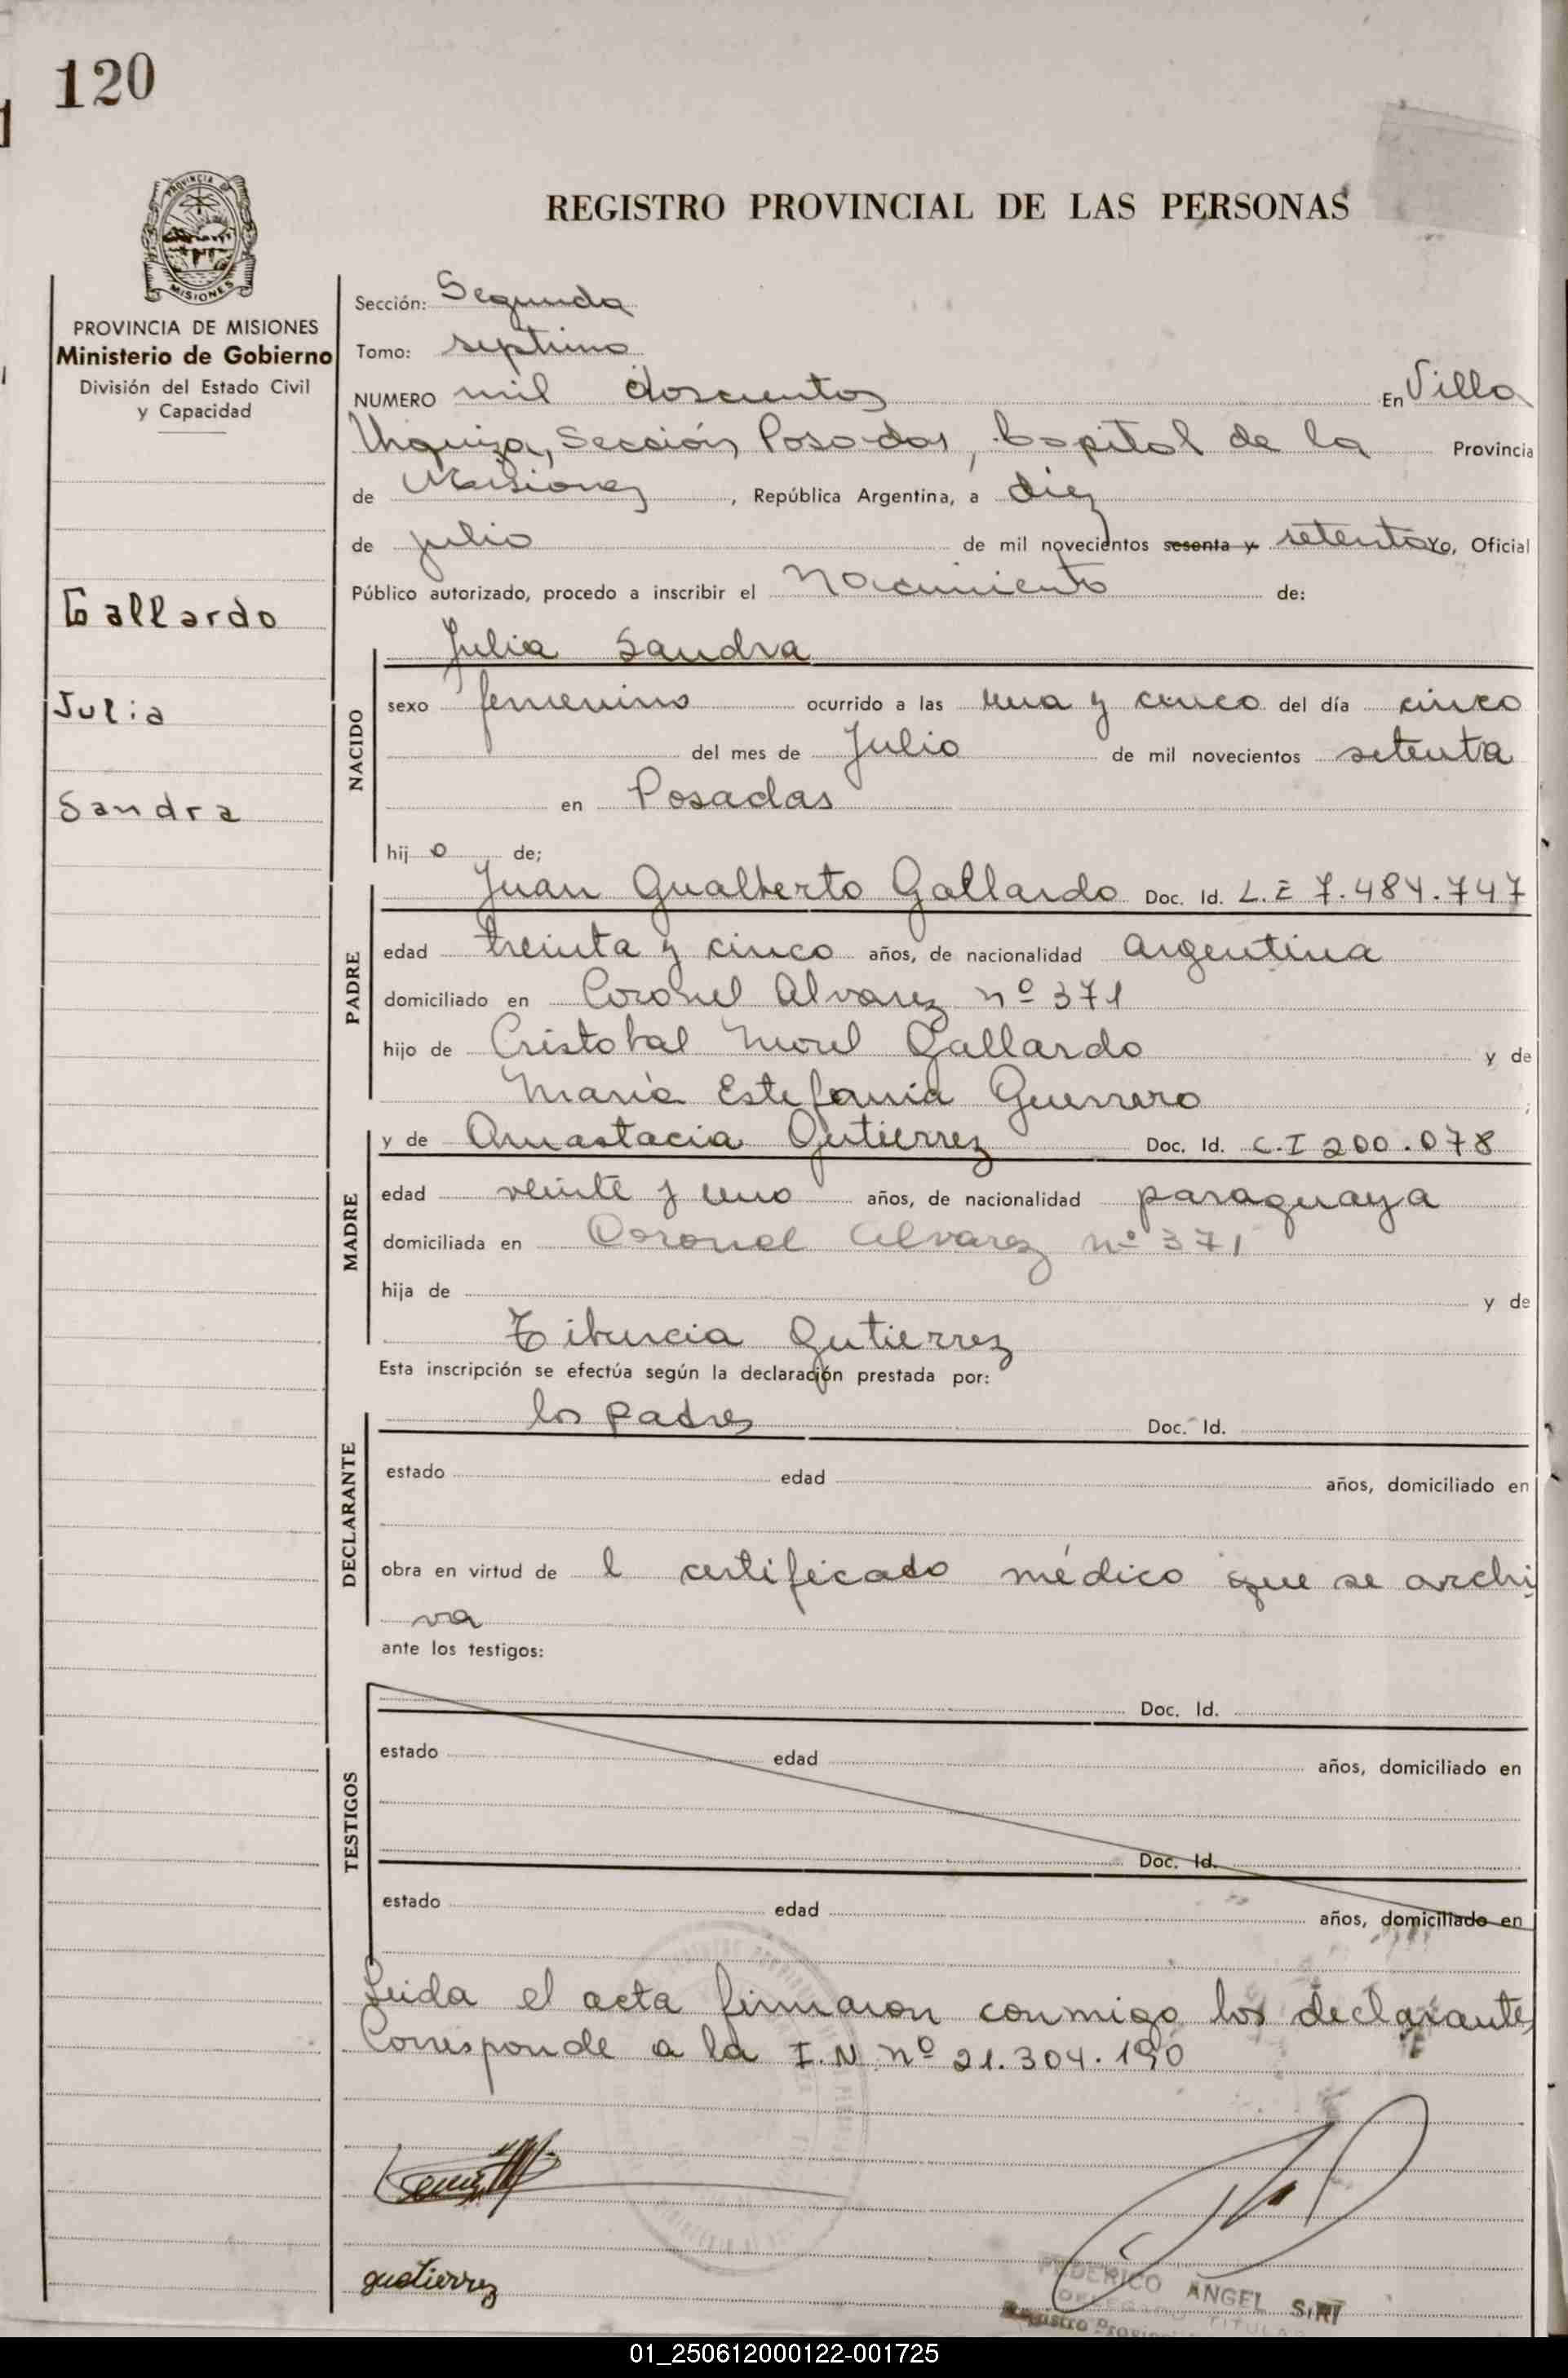 120
PROVINCIA
MISIONES
PROVINCIA DE MISIONES
Ministerio de Gobierno
División del Estado Civil
y Capacidad
Gallardo
Julia
Sandra
REGISTRO PROVINCIAL DE LAS PERSONAS
Sección: Segunda
Tomo: septimo
NUMERO mil doscientos En Villa
Urquiza, Sección Posadas, Capital de la Provincia
de Misiones, República Argentina, a diez
de julio de mil novecientos sesenta y setenta Yo, Oficial
Público autorizado, procedo a inscribir el Nacimiento de:
Julia Sandra
NACIDO
sexo femenino ocurrido a las una y cinco del día cinco
del mes de Julio de mil novecientos setenta
en Posadas
hij o de;
PADRE
Juan Gualberto Gallardo Doc. Id. L.E 7.484.747
edad treinta y cinco años, de nacionalidad argentina
domiciliado en Coronel Alvarez nº 371
hijo de Cristobal Morel Gallardo y de
María Estefania Guerrero ;
MADRE
y de Anastacia Gutierrez Doc. Id. C.I 200.078
edad veinte y uno años, de nacionalidad paraguaya
domiciliada en Coronel Alvarez nº 371
hija de y de
Tiburcia Gutierrez
Esta inscripción se efectúa según la declaración prestada por:
DECLARANTE
los padres Doc. Id.
estado edad años, domiciliado en
obra en virtud de l certificado médico que se archi
va
ante los testigos:
TESTIGOS
Doc. Id.
estado edad años, domiciliado en
Doc. Id.
estado edad años, domiciliado en
Leida el acta firmaron conmigo los declarantes
Corresponde a la I.N. nº 21.304.190
gutierrez
FEDERICO ANGEL SIRI
DELEGADO TITULAR
Registro
01_250612000122-001725